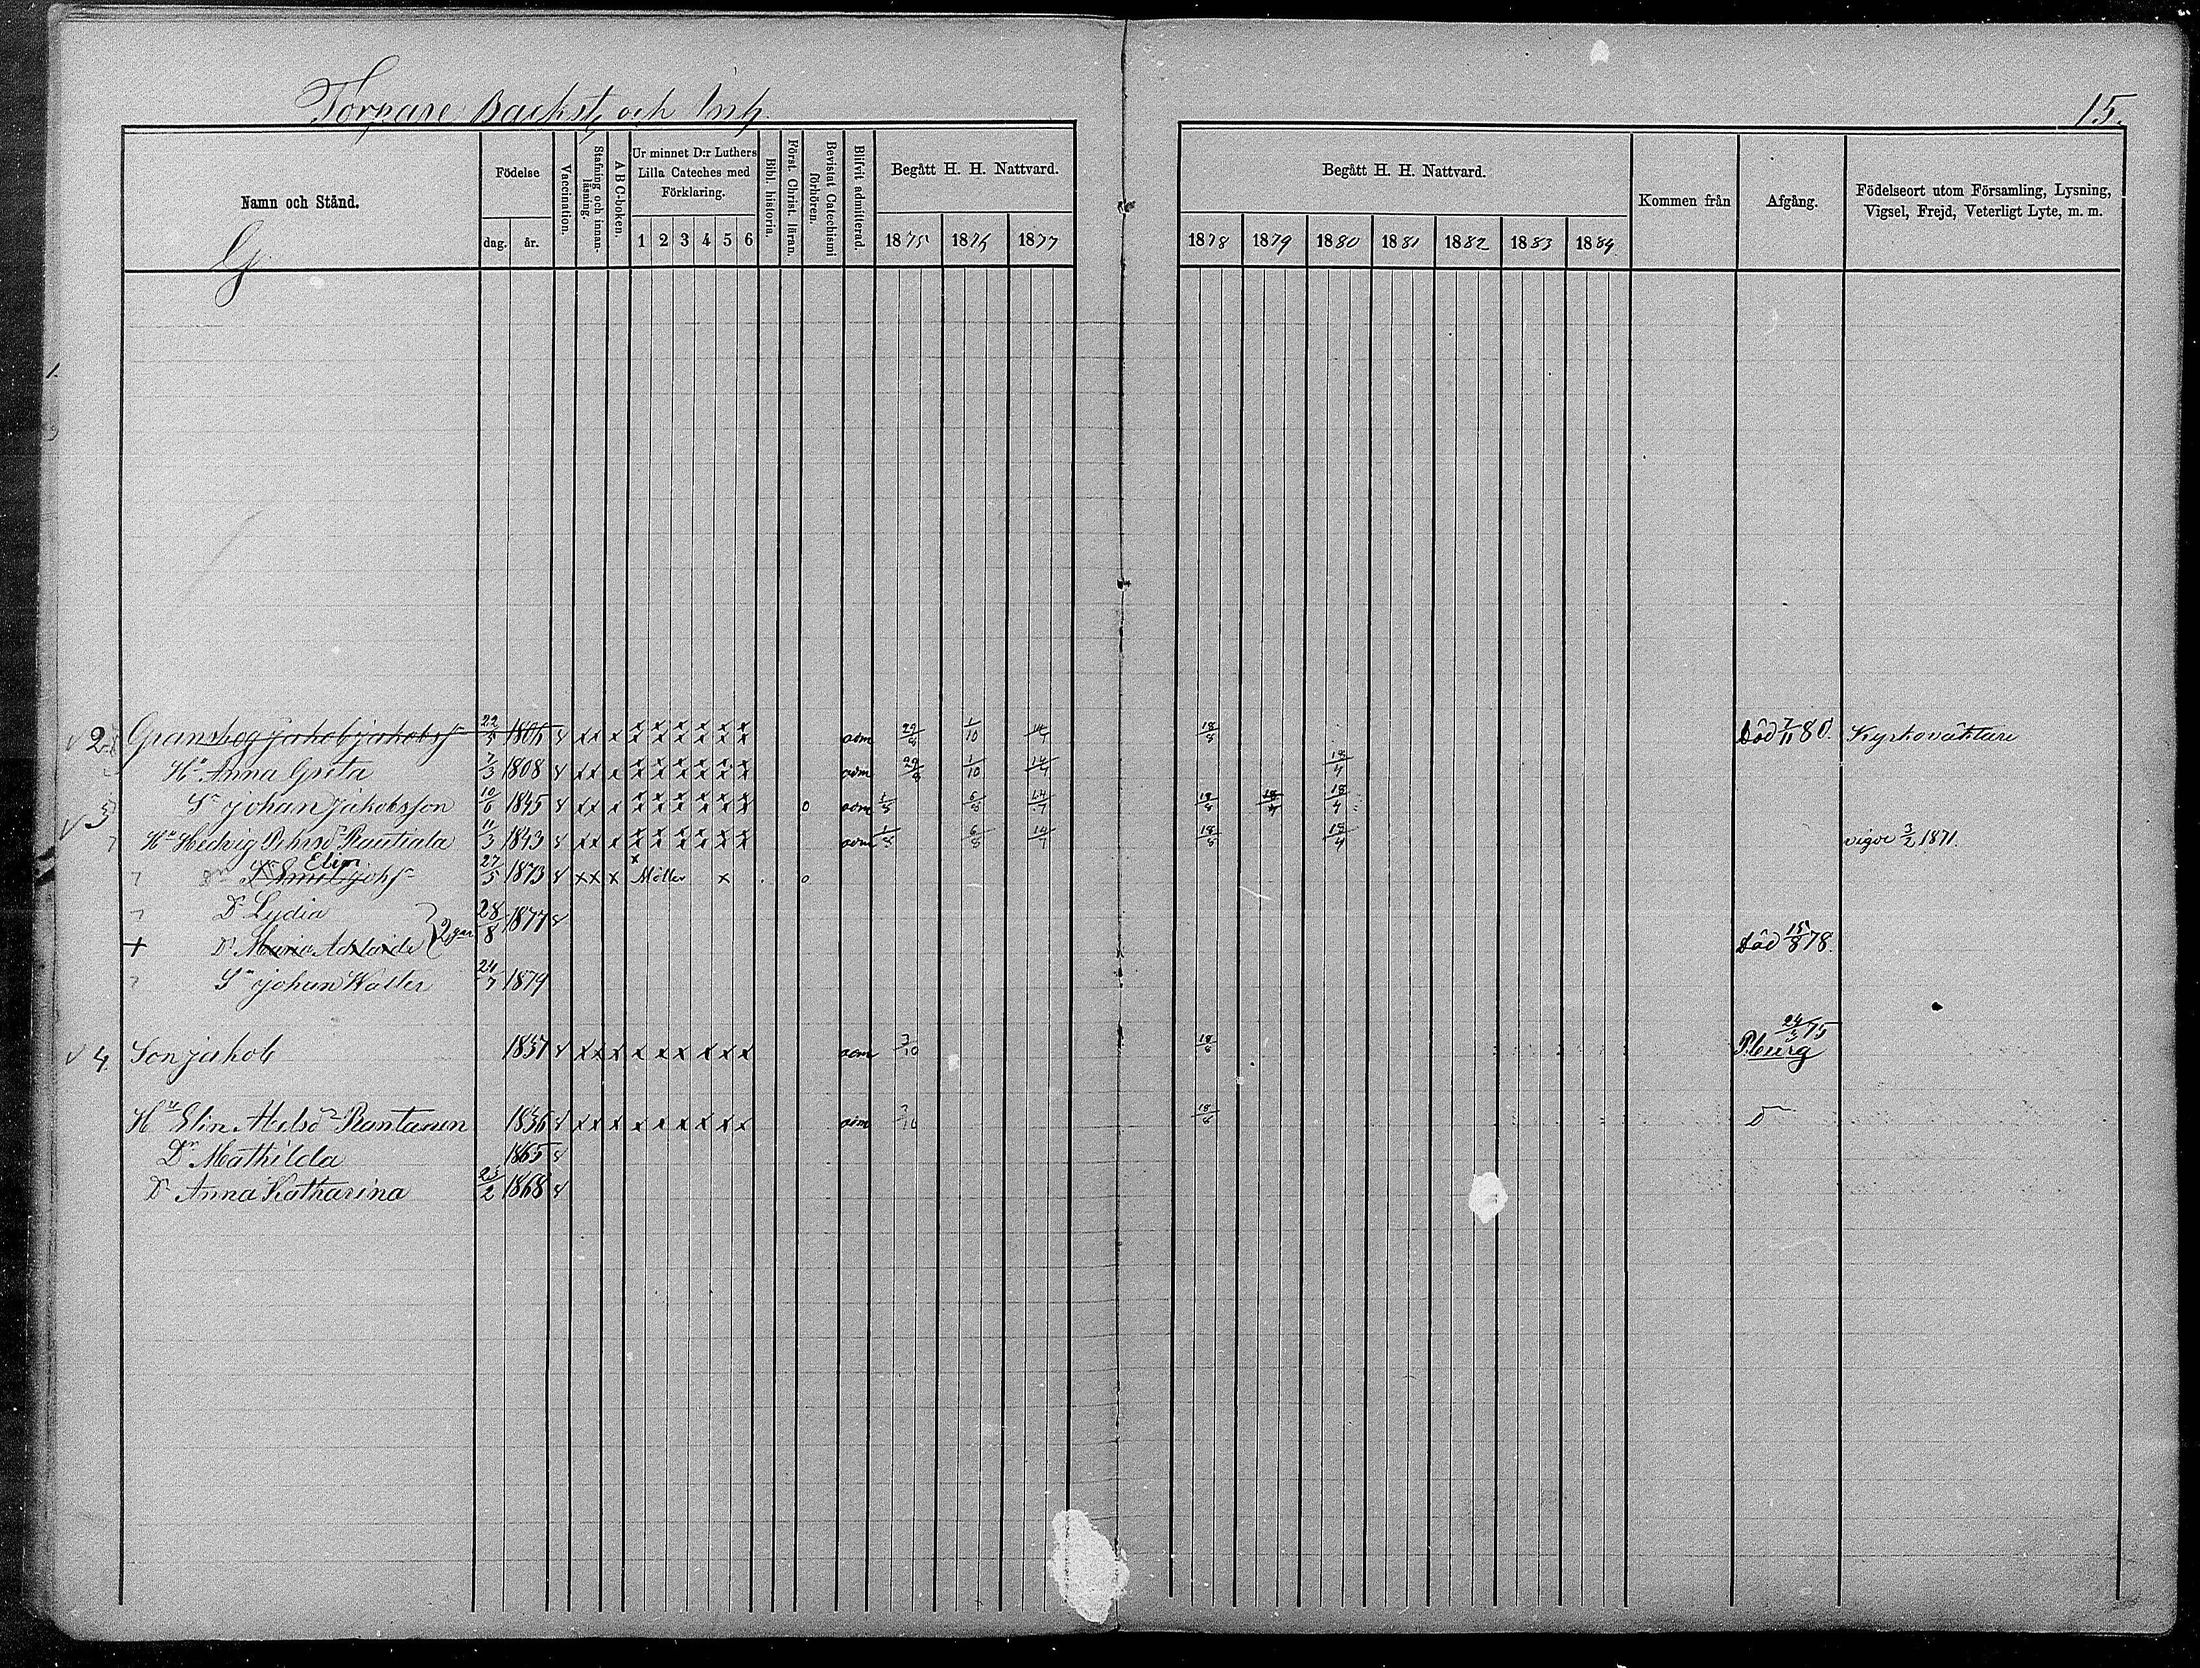 Torpare Backst. och Inh. 15.
Namn och Stånd. Födelse Vaccination. Stafning och innan-läsning. A B C-boken. Ur minnet D:r Luthers Lilla Cateches med Förklaring. Bibl. historia. Först. Christ. läran. Bevistat Catechismi förhören. Blifvit admitterad. Begått H. H. Nattvard. Begått H. H. Nattvard. Kommen från Afgång. Födelseort utom Församling, Lysning, Vigsel, Frejd, Veterligt Lyte, m. m.
G. dag. år. 1 2 3 4 5 6 1875 1876 1877 1878 1879 1880 1881 1882 1883 1884
2 Granskog Jakob Jakobss 22/3 x x x x x x x x x x x x x x x adm 29/8 1/10 14/7 18/8 Död 7/11 80. Kyrkoväktare
Hu Anna Greta 7/3 1808 x x x x x x x x x x x x x x x adm 29/8 1/10 14/7 18/4
3 Sn Johan Jakobsson 10/6 1845 x x x x x x x x x x x x x x x o adm 1/8 6/8 14/7 18/8 18/4 18/4
Hu Hedvig Rautiala 11/3 1843 x x x x x x x x x x x x x x x adm 1/8 6/8 14/7 18/8 18/4 vigde 3/2 1871.
Elin
Emil Johs 27/5 1873 x x x x x o
Dr Lydia 28/8 1877
Dr Maria Adelaide 2 Död 15/8 78.
Sn Johan Walter 24/7 1879
4 Son Jakob 1837 x x x x x x x x x adm 3/10 18/8 24/5 75 P.burg
Hu Elin Rantanen 1836 x x x x x x x x x adm 3/10 18/8
Dr Mathilda 1865
Dr Anna Katharina 23/2 1868